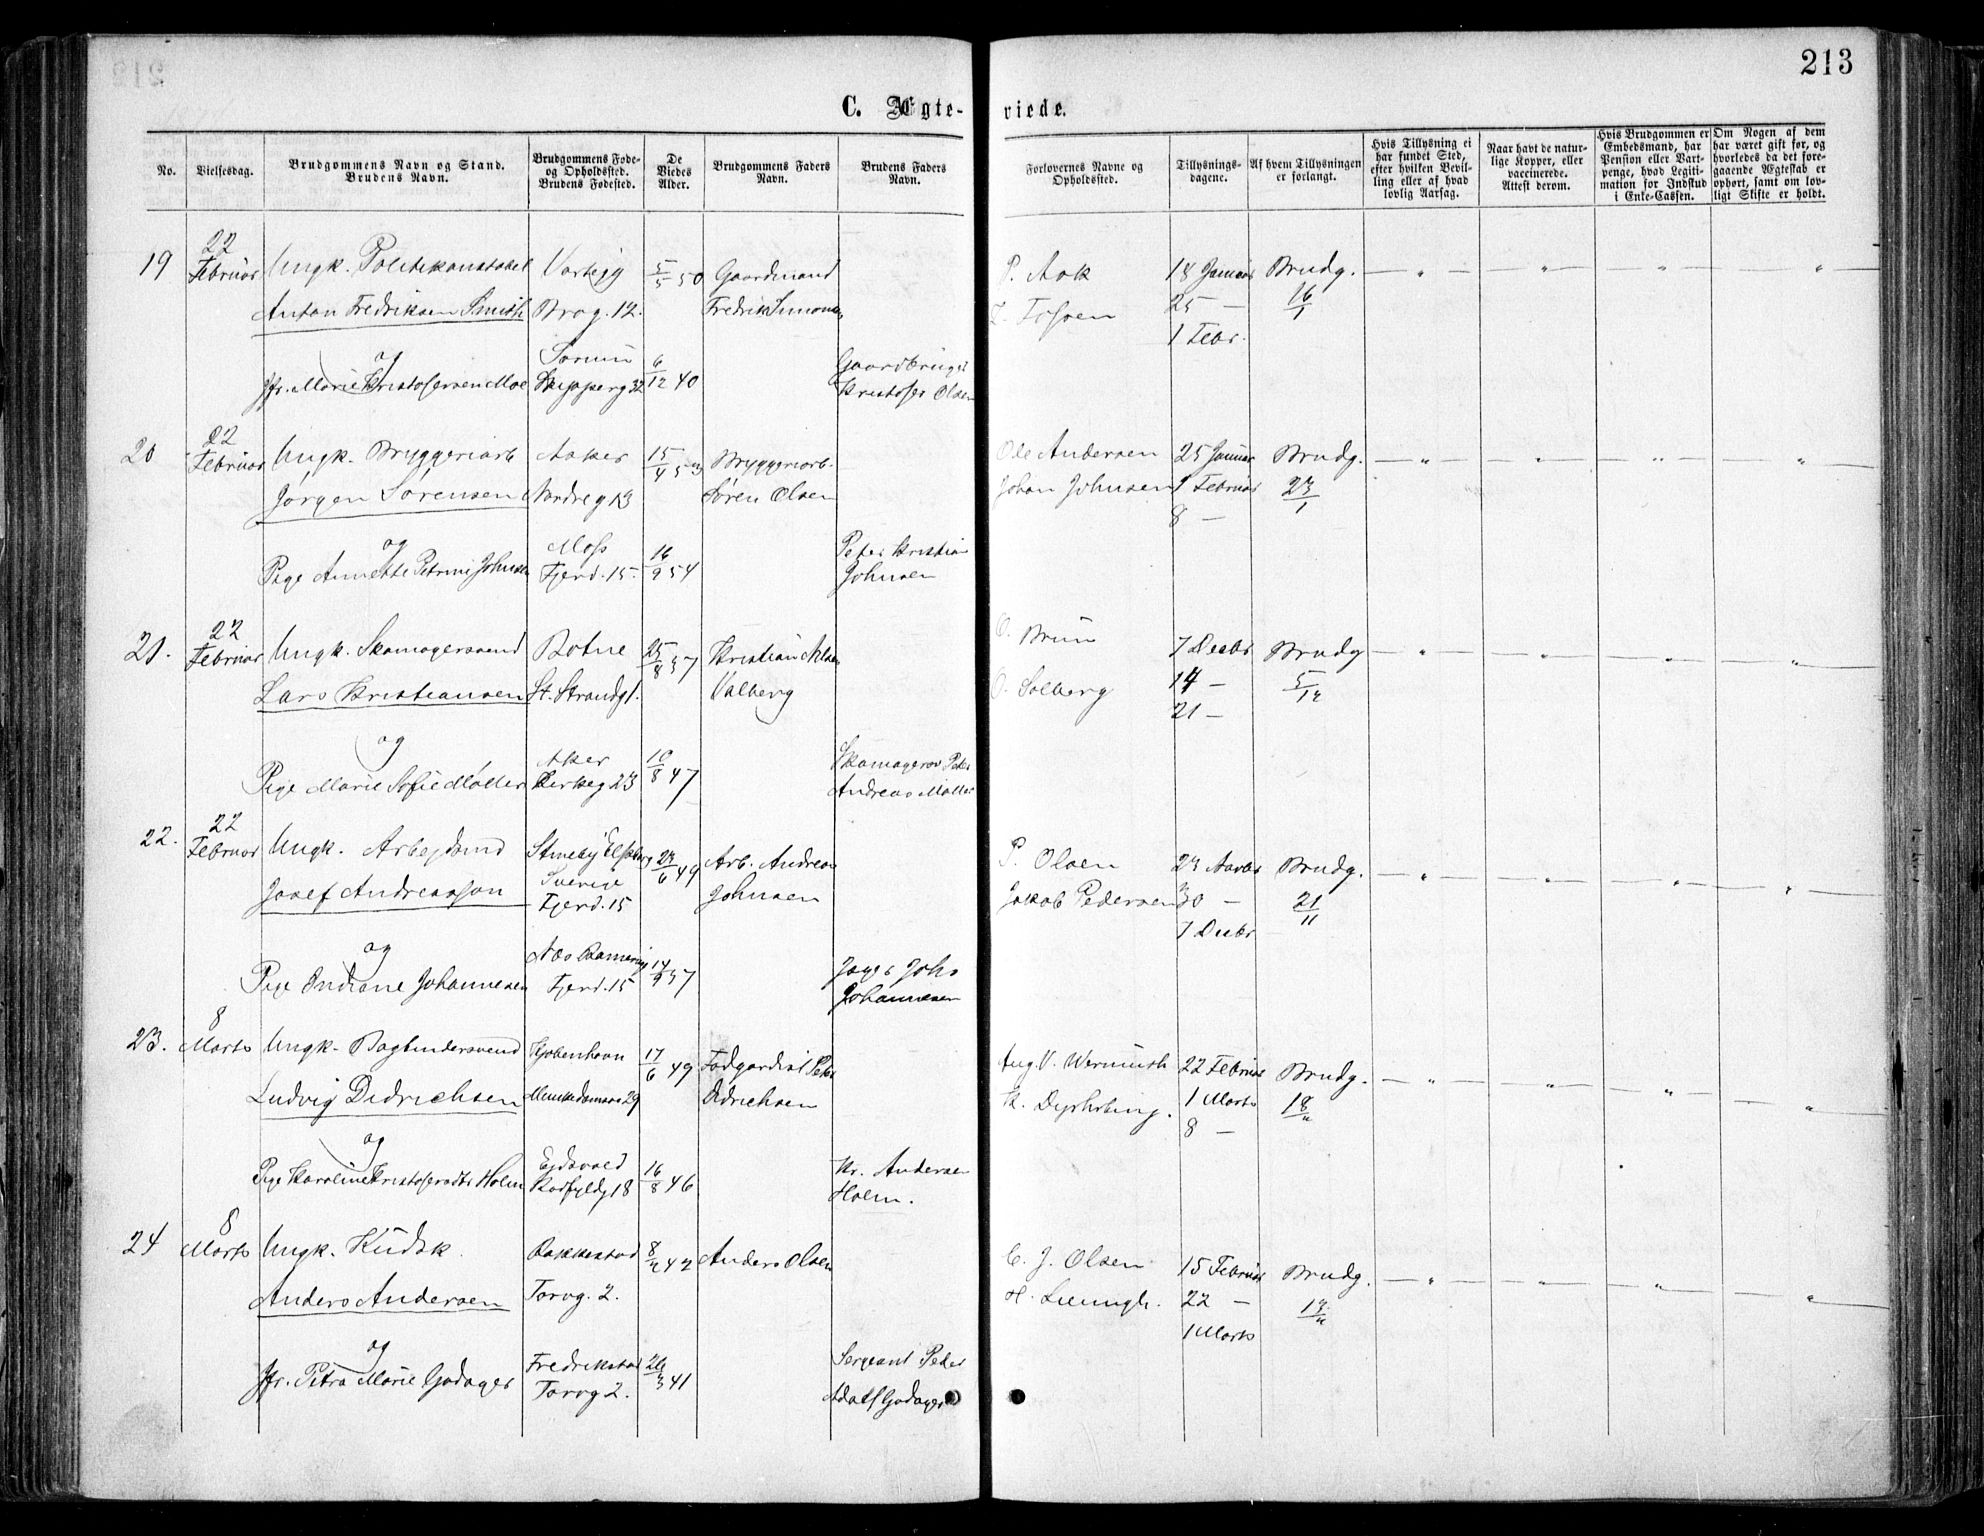 213
C. Ægte-
viede.
No.
Vielsesdag.
Brudgommens Navn og Stand.
Brudens Navn.
Brudgommens Føde-
og Opholdssted.
Brudens Fødested.
De
Viedes
Alder.
Brudgommens Faders
Navn.
Brudens Faders
Navn.
Forlovernes Navne og
Opholdssted.
Tillysnings-
dagene.
Af hvem Tillysningen
er forlangt.
Hvis Tillysning ei
har fundet Sted,
efter hvilken Bevil-
ling eller af hvad
lovlig Aarsag.
Naar havt de natur-
lige Kopper, eller
vaccinerede.
Attest derom.
Hvis Brudgommen er
Embedsmand, har
Pension eller Vart-
penge, hvad Legiti-
mation for Indskud
i Enke-Cassen.
Om Nogen af dem
har været gift før, og
hvorledes da det fore-
gaaende Ægteskab er
ophørt, samt om lov-
ligt Skifte er holdt.
19 22 Februar Ungk. Politikonstabel 5/5 50 Gaardmand P. Aok 18 Januar Brudg. — " — " — " — "
Anton Fredriksen Smith Brog. 12. Fredrik Simonsen 25 — 16/1
1 Febr.
og
Jfr. Marie Kristofersen Moe Skipperg 32 6/12 40 Gaardbruger
Kristofer Olsen
20 22 Februar Ungk. Bryggeriarb Aker 15/4 53 Bryggeriarb. Ole Andersen 25 Januar Brudg. — " — " — " — "
Jørgen Sørensen Nordreg 13 Søren Olsen Johan Johnsen 1 Februar 23/1
8 —
og Moss
Pige Annette Petrine Johnsen Fjerd. 15. 16/9 54 Peter Kristian
Johnsen
21. 22 Februar Ungk. Skomagersvend Botne 25/8 57 Kristian Nilsen O. Bruun 7 Decbr Brudg — " — " — " — "
Lars Kristiansen St. Strandg 1. Valberg O. Solberg 14 — 5/12
21 —
og Aker
Pige Marie Sofie Møller Kirkeg 23 10/8 47 Skomagersv Peter
Andreas Møller
22. 22 Februar Ungk. Arbejdsmd 23/6 49 Arb. Andreas P. Olsen 23 Novbr Brudg. — " — " — " — "
Josef Andreasson Sverige Johnsen Jakob Pedersen 30 — 21/11
Fjerd. 15 7 Decbr
og
Pige Indiane Johannesen Fjerd. 15 14/9 57 Jæger Johs
Johannesen
23. 8 Marts Ungk. Bogbindersvend Kjøbenhavn 17/6 49 Fodgardist Peter Aug. V. Wermuth 22 Februar Brudg. — " — " — " — "
Ludvig Didrichsen Munkedamsv 29 Didrichsen K. Dyrhbing. 1 Marts 18/2
8 —
og Eidsvold
Pige Karoline Kristofersdtr Holm 18 16/8 46 Kr. Andersen
Holm.
24 8 Marts Ungk. Kudsk Rakkestad 8/2 42 Anders Olsen C. J. Olsen 15 Februar Brudg. — " — " — " — "
Anders Andersen Torvg. 2. 22 — 13/2
1 Marts
og Fredrikstad
Jfr. Petra Marie Godager Torvg 2. 26/3 41 Sergeant Peder
Adolf Godager